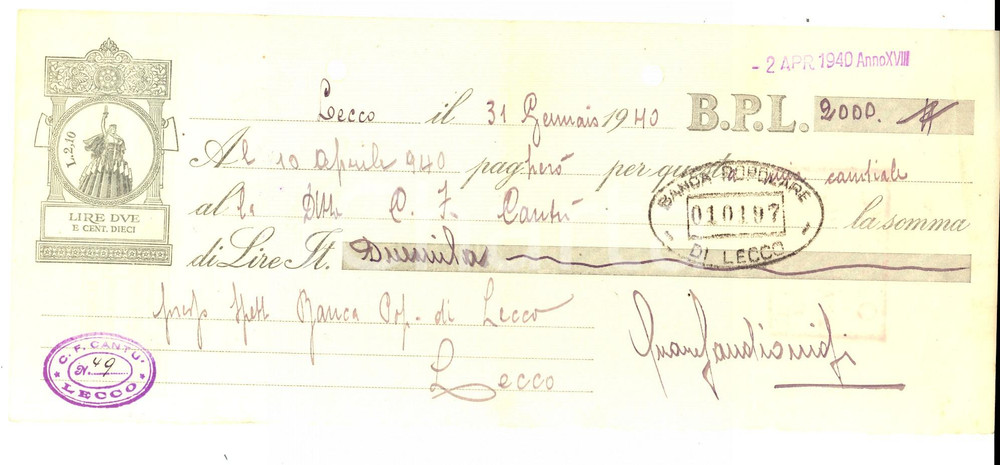 - 2 APR 1940 Anno XVIII
Lecco il 31 Gennaio 1940 B.P.L. 2000.
L.2,10
Al 10 Aprile 940 pagherò per questa mia cambiale
LIRE DVE
E CENT. DIECI
al la Ditta C. F. Cantù la somma
BANCA POPOLARE
010197
DI LECCO
di Lire It. Duemila
presso Spett Banca Pop. di Lecco
Lecco
C. F. CANTU'
N. 49
LECCO